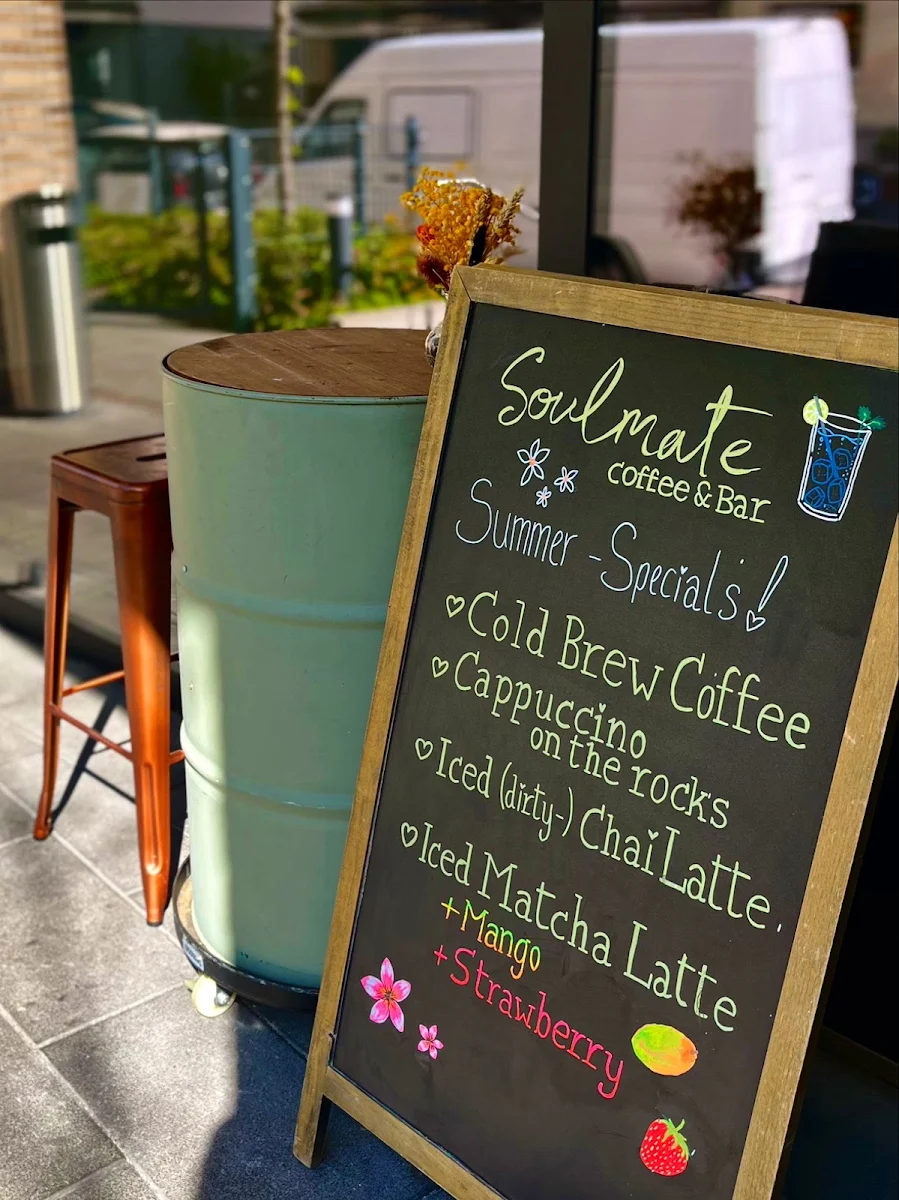 Soulmate
Coffee & Bar
Summer - Specials!
Cold Brew Coffee
Cappuccino
on the rocks
Iced (dirty-) Chai Latte
Iced Matcha Latte
+Mango
+Strawberry